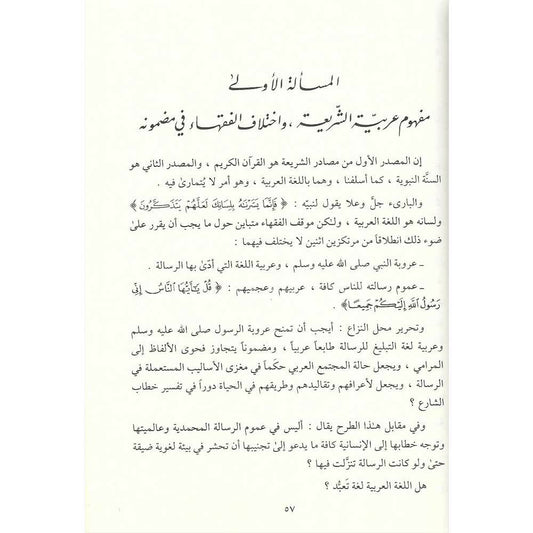 المسألة الأولىٰ
مفهوم عربيّة الشّريعة ، واختلاف الفقهاء في مضمونه
إن المصدر الأول من مصادر الشريعة هو القرآن الكريم ، والمصدر الثاني هو
السنَّة النبوية ، كما أسلفنا ، وهما باللغة العربية ، وهو أمر لا يُتمارىٰ فيه .
والبارىء جلَّ وعلا يقول لنبيّه : ﴿ فَإِنَّمَا يَسَّرْنَٰهُ بِلِسَانِكَ لَعَلَّهُمْ يَتَذَكَّرُونَ ﴾
ولسانه هو اللغة العربية ، ولٰكن موقف الفقهاء متباين حول ما يجب أن يقرر علىٰ
ضوء ذلك انطلاقاً من مرتكزين اثنين لا يختلف فيهما :
ـ عروبة النبي صلى الله عليه وسلم ، وعربية اللغة التي أدّىٰ بها الرسالة .
ـ عموم رسالته للناس كافة ، عربيهم وعجميهم : ﴿ قُلْ يَٰٓأَيُّهَا ٱلنَّاسُ إِنِّى
رَسُولُ ٱللَّهِ إِلَيْكُمْ جَمِيعًا ﴾ .
وتحرير محل النزاع : أيجب أن تمنح عروبة الرسول صلى الله عليه وسلم
وعربية لغة التبليغ للرسالة طابعاً عربياً ، ومضموناً يتجاوز فحوى الألفاظ إلى
المرامي ، ويجعل حالة المجتمع العربي حكَماً في مغزى الأساليب المستعملة في
الرسالة ، ويجعل لأعرافهم وتقاليدهم وطريقهم في الحياة دوراً في تفسير خطاب
الشارع ؟
وفي مقابل هٰذا الطرح يقال : أليس في عموم الرسالة المحمدية وعالميتها
وتوجه خطابها إلى الإنسانية كافة ما يدعو إلىٰ تجنيبها أن تحشر في بيئة لغوية ضيقة
حتىٰ ولو كانت الرسالة تنزَّلت فيها ؟
هل اللغة العربية لغة تَعبُّد ؟
٥٧